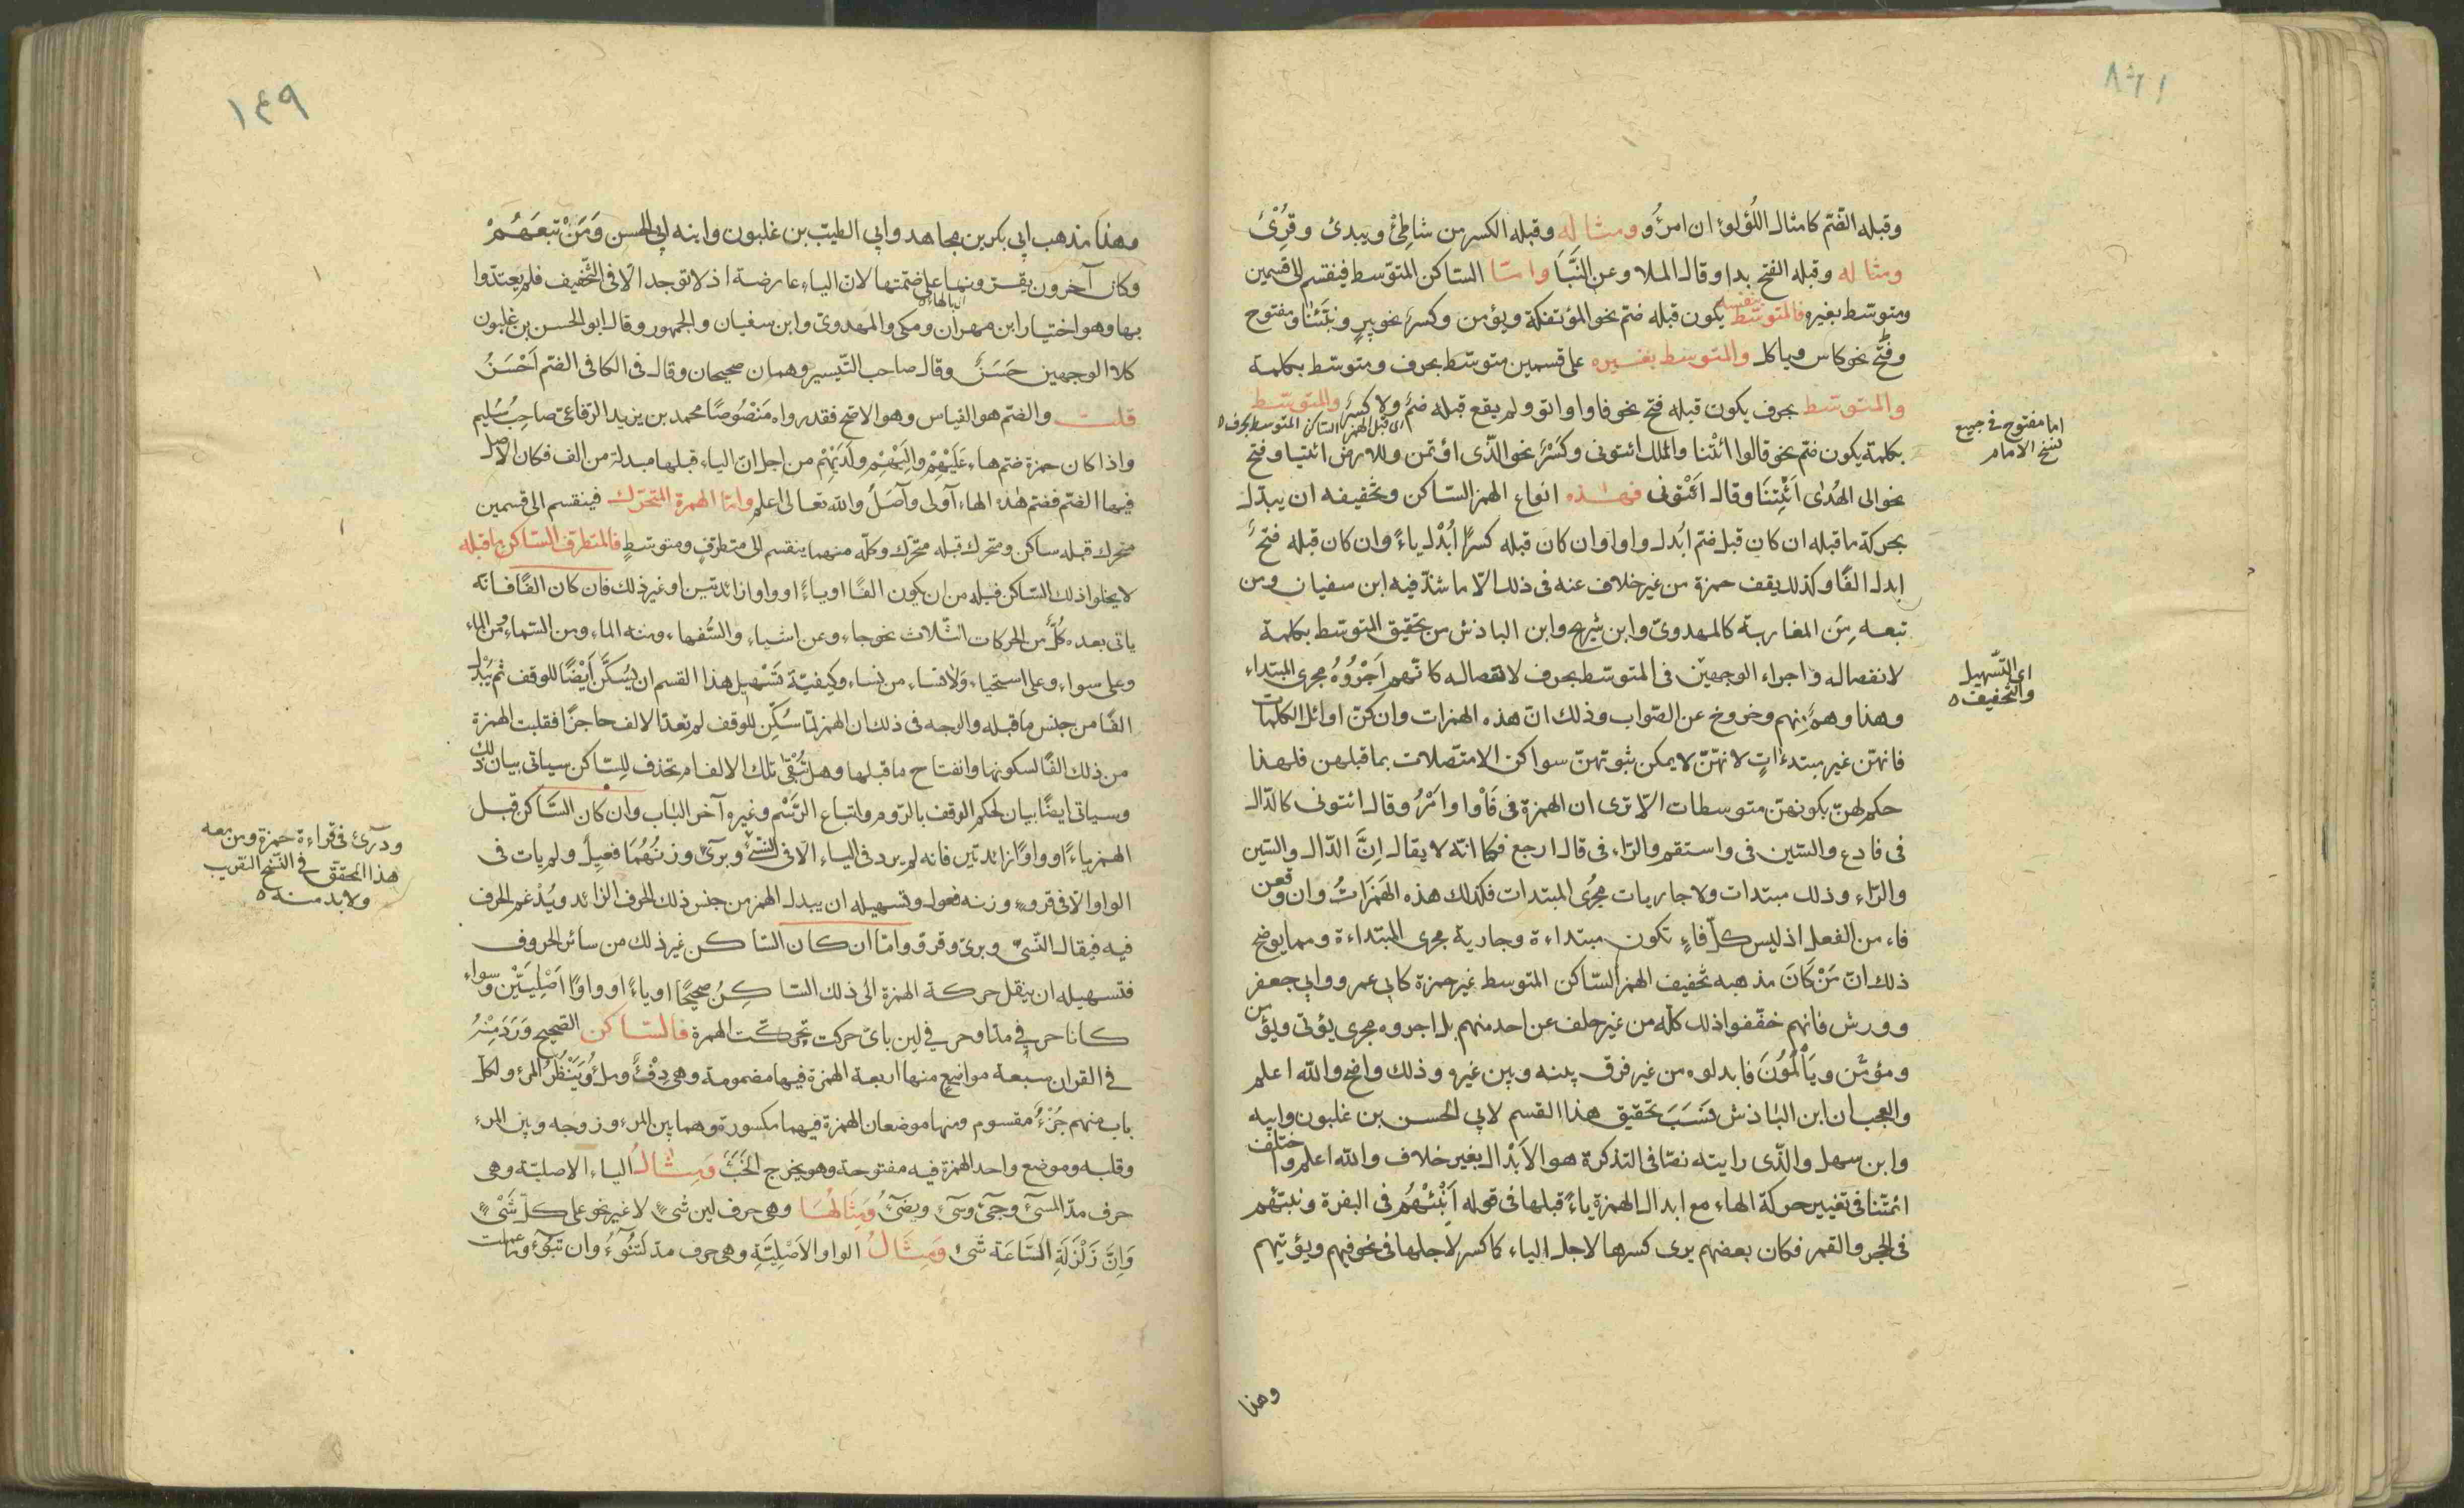 ١٤٨
وقبله الضّم كامثال اللُؤلوء ان امرُؤ ومثاله وقبله الكسر من شاطِئ ويبدئ وقُرِئَ
ومثاله وقبله الفتح بدا وقال الملا وعن النَّبَأ وامّا السّاكن المتوّسط فينقسم الى قسمين
ومتوسّط بغيره فالمتوسّط بنفسه يكون قبله ضم نحو المؤتفكة ويؤمن وكسرٌ نحو بيرٍ ونبّئنا ومفتوح
وفتحٌ نحو كاس وياكل والمتوسط بغيره على قسمين متوسّط بحرف ومتوسّط بكلمة
والمتوسّط بحرف يكون قبله فتح نحو فاووا واتو ولم يقع قبله ضمٌ ولا كسرٌ والمتوسّط
اى قبل الهمز الساكن المتوسط بحرف
بكلمة يكون ضم نحو قالوا ائْتنا والملك ائتونى وكسْرٌ نحو الّذى اؤتمن وللارض ائتيا وفتح
نحو الى الهُدٰى ائْتِنَا وقال ائْتونى فهٰذه انواع الهمز السّاكن وتخفيفه ان يبدّل
بحركة ما قبله ان كان قبل ضم اُبدل واوا وان كان قبله كسرٌ اُبْدل ياءً وان كان قبله فتحٌ
ابدل الفًا وكذلك يقف حمزة من غير خلاف عنه فى ذلك الاّ ما شذّ فيه ابن سفيان ومن
تبعه مِنَ المغاربة كالمهدوىّ وابن شريح وابن الباذش من تحقيق المتوسّط بكلمة
لانفصاله واجراء الوجهيْن فى المتوسّط بحرف لاتصاله كانّهم اَجْرُوْهُ مجرى المبتداء
وهذا وهمٌ منهم وخروج عن الصّواب وذلك انّ هذه الهمزات وان كنّ اوائل الكلمات
فانهنّ غير مبتدءاتٍ لانهّنّ لا يمكن ثبوتهنّ سواكن الا متصّلات بما قبلهن فلهذا
حكم لهنّ بكونهنّ متوسطات الاّ ترى ان الهمزة فى فَاْوا وامْرُ وقال ائتونى كالدّال
فى فادع والسّين فى واستقم والرّاء فى قال ارجع فكما انّه لا يقال اِنَّ الدّال والسّين
والرّاء وذلك مبتدات ولا جاريات مجُرَى المبتدات فكذلك هذه الهَمَزَاتُ وان وقعن
فاء من الفعل اذ ليس كلّ فاءٍ تكون مبتداءة وجارية مجرى المبتداءة ومما يوضح
ذلك انّ مَنْ كَانَ مذهبه تخفيف الهمز السّاكن المتوسط غير حمزة كابى عمرو وابى جعفر
وورش فانهم خفّفوا ذلك كلّه من غير خلف عن احد منهم بل اجروه مجرى يؤتى ويؤمن
ومؤمّن ويَأْلَمُوْنَ فابدلوه من غير فرق بينه وبين غيره وذلك واضح والله اعلم
والعجب ان ابن البٰاذش نَسَبَ تحقيق هذا القسم لابى الحسن بن غلبون وابيه
وابن سهل والّذى رايته نصّا فى التذكرة هو الاَبْدال بغير خلاف والله اعلم واختلف
ائمتّنا فى تغيير حركة الهاء مع ابدال الهمزة ياءً قبلها فى قوله اَنْبِئْهُم فى البقرة ونبئهم
فى الحجر والقمر فكان بعضهم يرى كسرها لاجل الياء كما كسر لاجلها فى نحو فيهم ويؤتيهم
وهذا
اما مفتوح فى جميع
نسخ الامام
اى التّسهيل
والتخفيف
١٤٩
وهذا مذهب ابى بكر بن مجاهد وابى الطيب بن غلبون وابنه ابى الحسن وَمَنْ تبعَهُمْ
وكان آخرون يقرّونها على ضمّتها لان الياء عارضة اذ لا توجد الّا فى التّخفيف فلم يعتدّوا
بها وهو اختيار ابن مهران ومكى والمهدوىّ وابن سفيان والجمهور وقال ابو الحسن بن غلبون
كلا الوجهين حَسَنٌ وقال صاحب التّيسير وهما صحيحان وقال فى الكافى الضّم اَحْسَنُ
قلت والضّم هو القياس وهو الاصّح فقد رواه مَنْصُوصًا محمد بن يزيد الرّفاعىّ صاحبُ سُليم
واذا كان حمزة ضم هاء عَلَيْهُمْ واِلَيْهُمْ ولَدَيْهُمْ من اجل انّ الياء قبلها مبدلة من الف فكان الاصل
فيها الضّم فضّم هٰذه الهاء اَولى وآصَلُ والله تعالى اعلم وامّا الهمزة المتحرّك فينقسم الى قسمين
متحرك قبله ساكن ومتحرك قبله متحرّك وكلّه منهما ينقسم الى متطرّفٍ ومتوسّطٍ فالمتطرف السّاكن ما قبله
لا يخلو اذ لك السّاكن قبله من ان يكون الفًا او ياءً او واوا زائدتين او غير ذلك فان كان الفًا فانّه
ياتى بعده كُلٌّ من الحركات الثّلاث نحو جاء وعن اشياء والسُّفهاء ومنه الماء ومن السّماء ومن الماء
وعلى سواء وعلى استحياء ولا نساء من نساء وكيفيّة تَسْهيل هذا القسم ان يُسَكَّن اَيْضًا للوقف ثم يُبْدل
الفًا من جنس ما قبله والوجه فى ذلك ان الهمز لمّا سُكِّن للوقف لم تعدّ الالف حاجزًا فقلبت الهمزة
من ذلك الفًا لسكونها وانفتاح ما قبلها وهل تُبْقى تلك الالف ام تحذف للسّاكن سياتى بيان ذلك
وسياتى ايضًا بيان لحكم الوقف بالرّوم واتباع الرَّسْم وغيره آخر البٰاب وان كان السّاكن قبل
الهمز ياءً او واوًا زائدتين فانه لم يرد فى الياء الّا فى النسئ وبرئ وزنهُمَا فَعِيلٌ ولم يات فى
الواو الاّ فى قروءٍ وزنه فعول وتسهيله ان يبدل الهمز من جنس ذلك الحرف الزائد ويُدْغم الحرف
فيه فيقال النّسىّ وبرىّ وقروّ وامّا ان كان السّاكن غير ذلك من سائر الحروف
فتسهيله ان ينقل حركة الهمزة الى ذلك السّاكِنُ صحيحًا او ياءً او واوًا اَصْلِيَتَّيْن وسواء
كانا حرفى مدّ او حرفى لين باىّ حركت تحرّكت الهمزة فالسّاكن الصّحيح وَرَدَ مِنْهُ
فى القران سبعة مواضِع منها اربعة الهمزة فيها مضمومة وهى دِفْءٌ وملءُ ويَنْظُرُ المرء ولكلّ
باب منهم جُزْءٌ مقسوم ومنها موضعان الهمزة فيهما مكسورة وهما بين المرء وزوجه وبين المرء
وقلبه وموضع واحد الهمزة فيه مفتوحة وهو يخرج الخَبْءَ وَمِثٰالُ الياء الاصليّة وهى
حرف مدّ المسئ وجئ وسئ ويضئُ وَمِثَالُهَا وهى حرف لين شئٍ لا غير نحو على كلّ شَئٍ
وَاِنَّ زَلْزَلَةِ السَّاعَة شَئ وَمِثَالُ الواو الاَصْلِيَّةِ وهى حرف مدّ لَتَنُوءُ وان تبوءَ وما عملت
ودرّئ فى قراءة حمزة ومن معه
هذا المحقق فى النسخ القريب
ولا بد منه